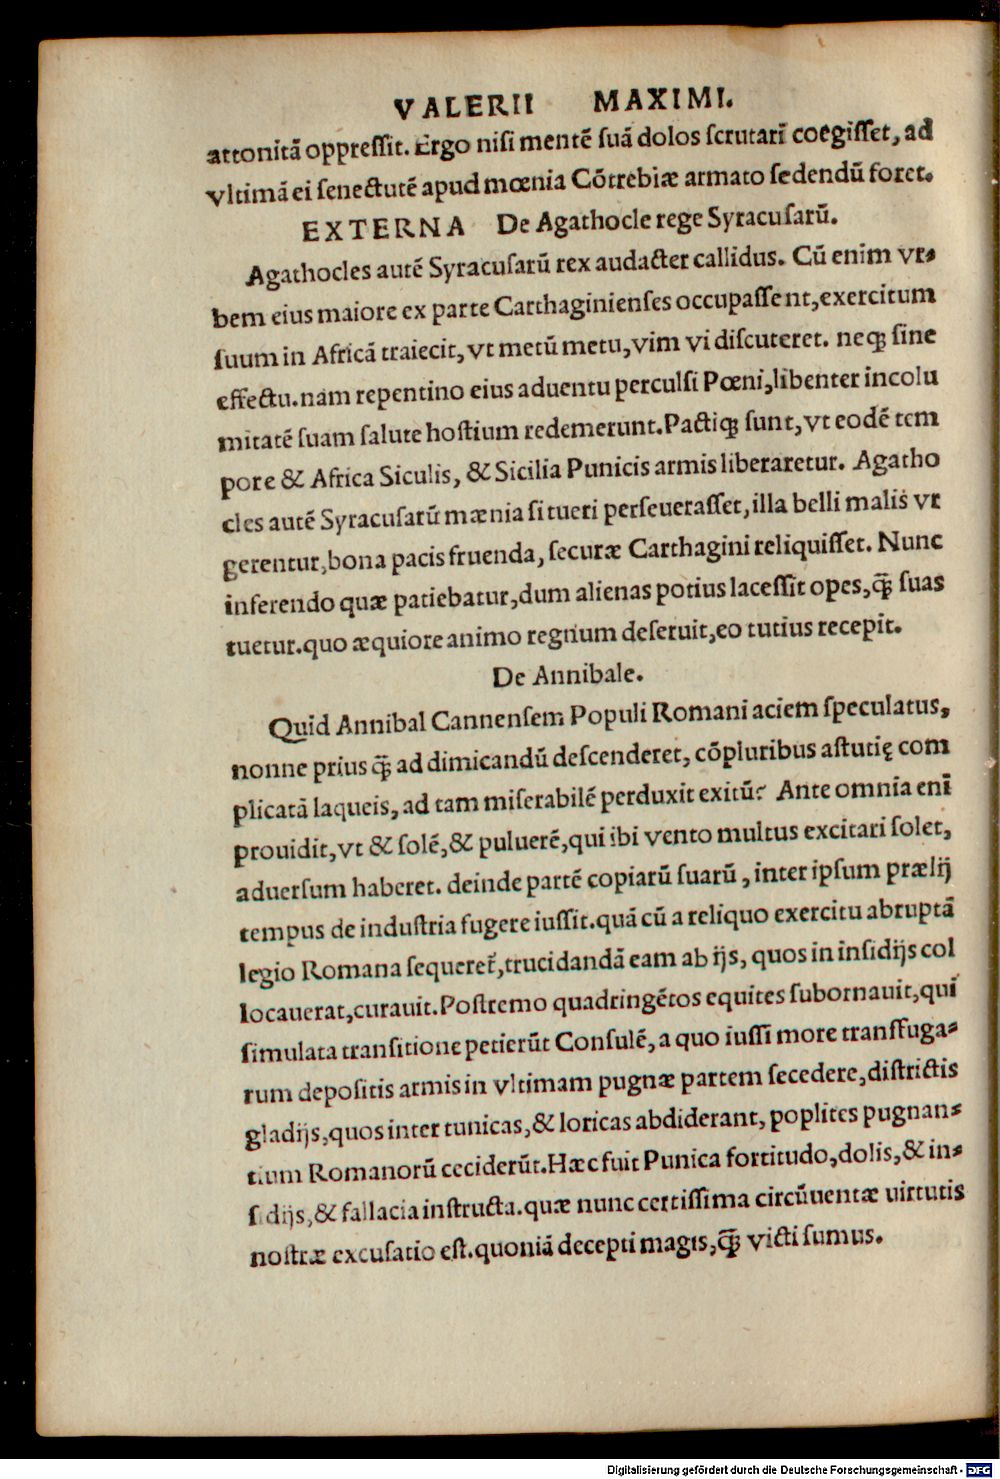 VALERII MAXIMI.
attonitā oppressit. Ergo nisi mentē suā dolos scrutari coegisset, ad
vltimā ei senectutē apud mœnia Cōtrebiæ armato sedendū foret.
EXTERNA De Agathocle rege Syracusarū.
Agathocles autē Syracusarū rex audacter callidus. Cū enim vr-
bem eius maiore ex parte Carthaginienses occupassent, exercitum
suum in Africā traiecit, vt metū metu, vim vi discuteret. neqꝫ sine
effectu. nam repentino eius aduentu perculsi Pœni, libenter incolu
mitatē suam salute hostium redemerunt. Pactiqꝫ sunt, vt eodē tem
pore & Africa Siculis, & Sicilia Punicis armis liberaretur. Agatho
cles autē Syracusarū mænia si tueri perseuerasset, illa belli malis vr
gerentur, bona pacis fruenda, securæ Carthagini reliquisset. Nunc
inferendo quæ patiebatur, dum alienas potius lacessit opes, q̄ꝫ suas
tuetur. quo æquiore animo regnum deseruit, eo tutius recepit.
De Annibale.
Quid Annibal Cannensem Populi Romani aciem speculatus,
nonne prius q̄ꝫ ad dimicandū descenderet, cōpluribus astutię com
plicatā laqueis, ad tam miserabilē perduxit exitū? Ante omnia enī
prouidit, vt & solē, & puluerē, qui ibi vento multus excitari solet,
aduersum haberet. deinde partē copiarū suarū, inter ipsum prælij
tempus de industria fugere iussit. quā cū a reliquo exercitu abruptā
legio Romana sequereť, trucidandā eam ab ijs, quos in insidijs col
locauerat, curauit. Postremo quadringētos equites subornauit, qui
simulata transitione petierūt Consulē, a quo iussi more transfuga-
rum depositis armis in vltimam pugnæ partem secedere, districtis
gladijs, quos inter tunicas, & loricas abdiderant, poplites pugnan-
tium Romanorū ceciderūt. Hæc fuit Punica fortitudo, dolis, & in-
sidijs, & fallacia instructa. quæ nunc certissima circūuentæ uirtutis
nostræ excusatio est. quoniā decepti magis, q̄ꝫ victi sumus.
Digitalisierung gefördert durch die Deutsche Forschungsgemeinschaft - DFG